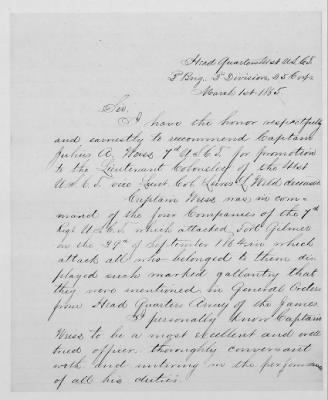 Head Quarters 41st U.S.C.T.
2d Brig. 2d Division, 25 Corps
March 1st 1865.
Sir.
I have the honor respectfully
and earnestly to recommend Captain
Julius A. Weiss, 7th U.S.C.T. for promotion
to the Lieutenant Colonelcy of the 41st
U.S.C.T. vice Lieut. Col. Lewis L. Weld deceased
Captain Weiss was in com-
mand of the four Companies of the 7th
Regt U.S.C.T. which attacked Fort Gilmer
on the 29th of September 1864, in which
attack all who belonged to them dis
played such marked gallantry that
they were mentioned in General Orders
from Head Quarters Army of the James.
I personally know Captain
Weiss to be a most excellent and well
tried officer, thoroughly conversant
with and untiring in the performance
of all his duties.